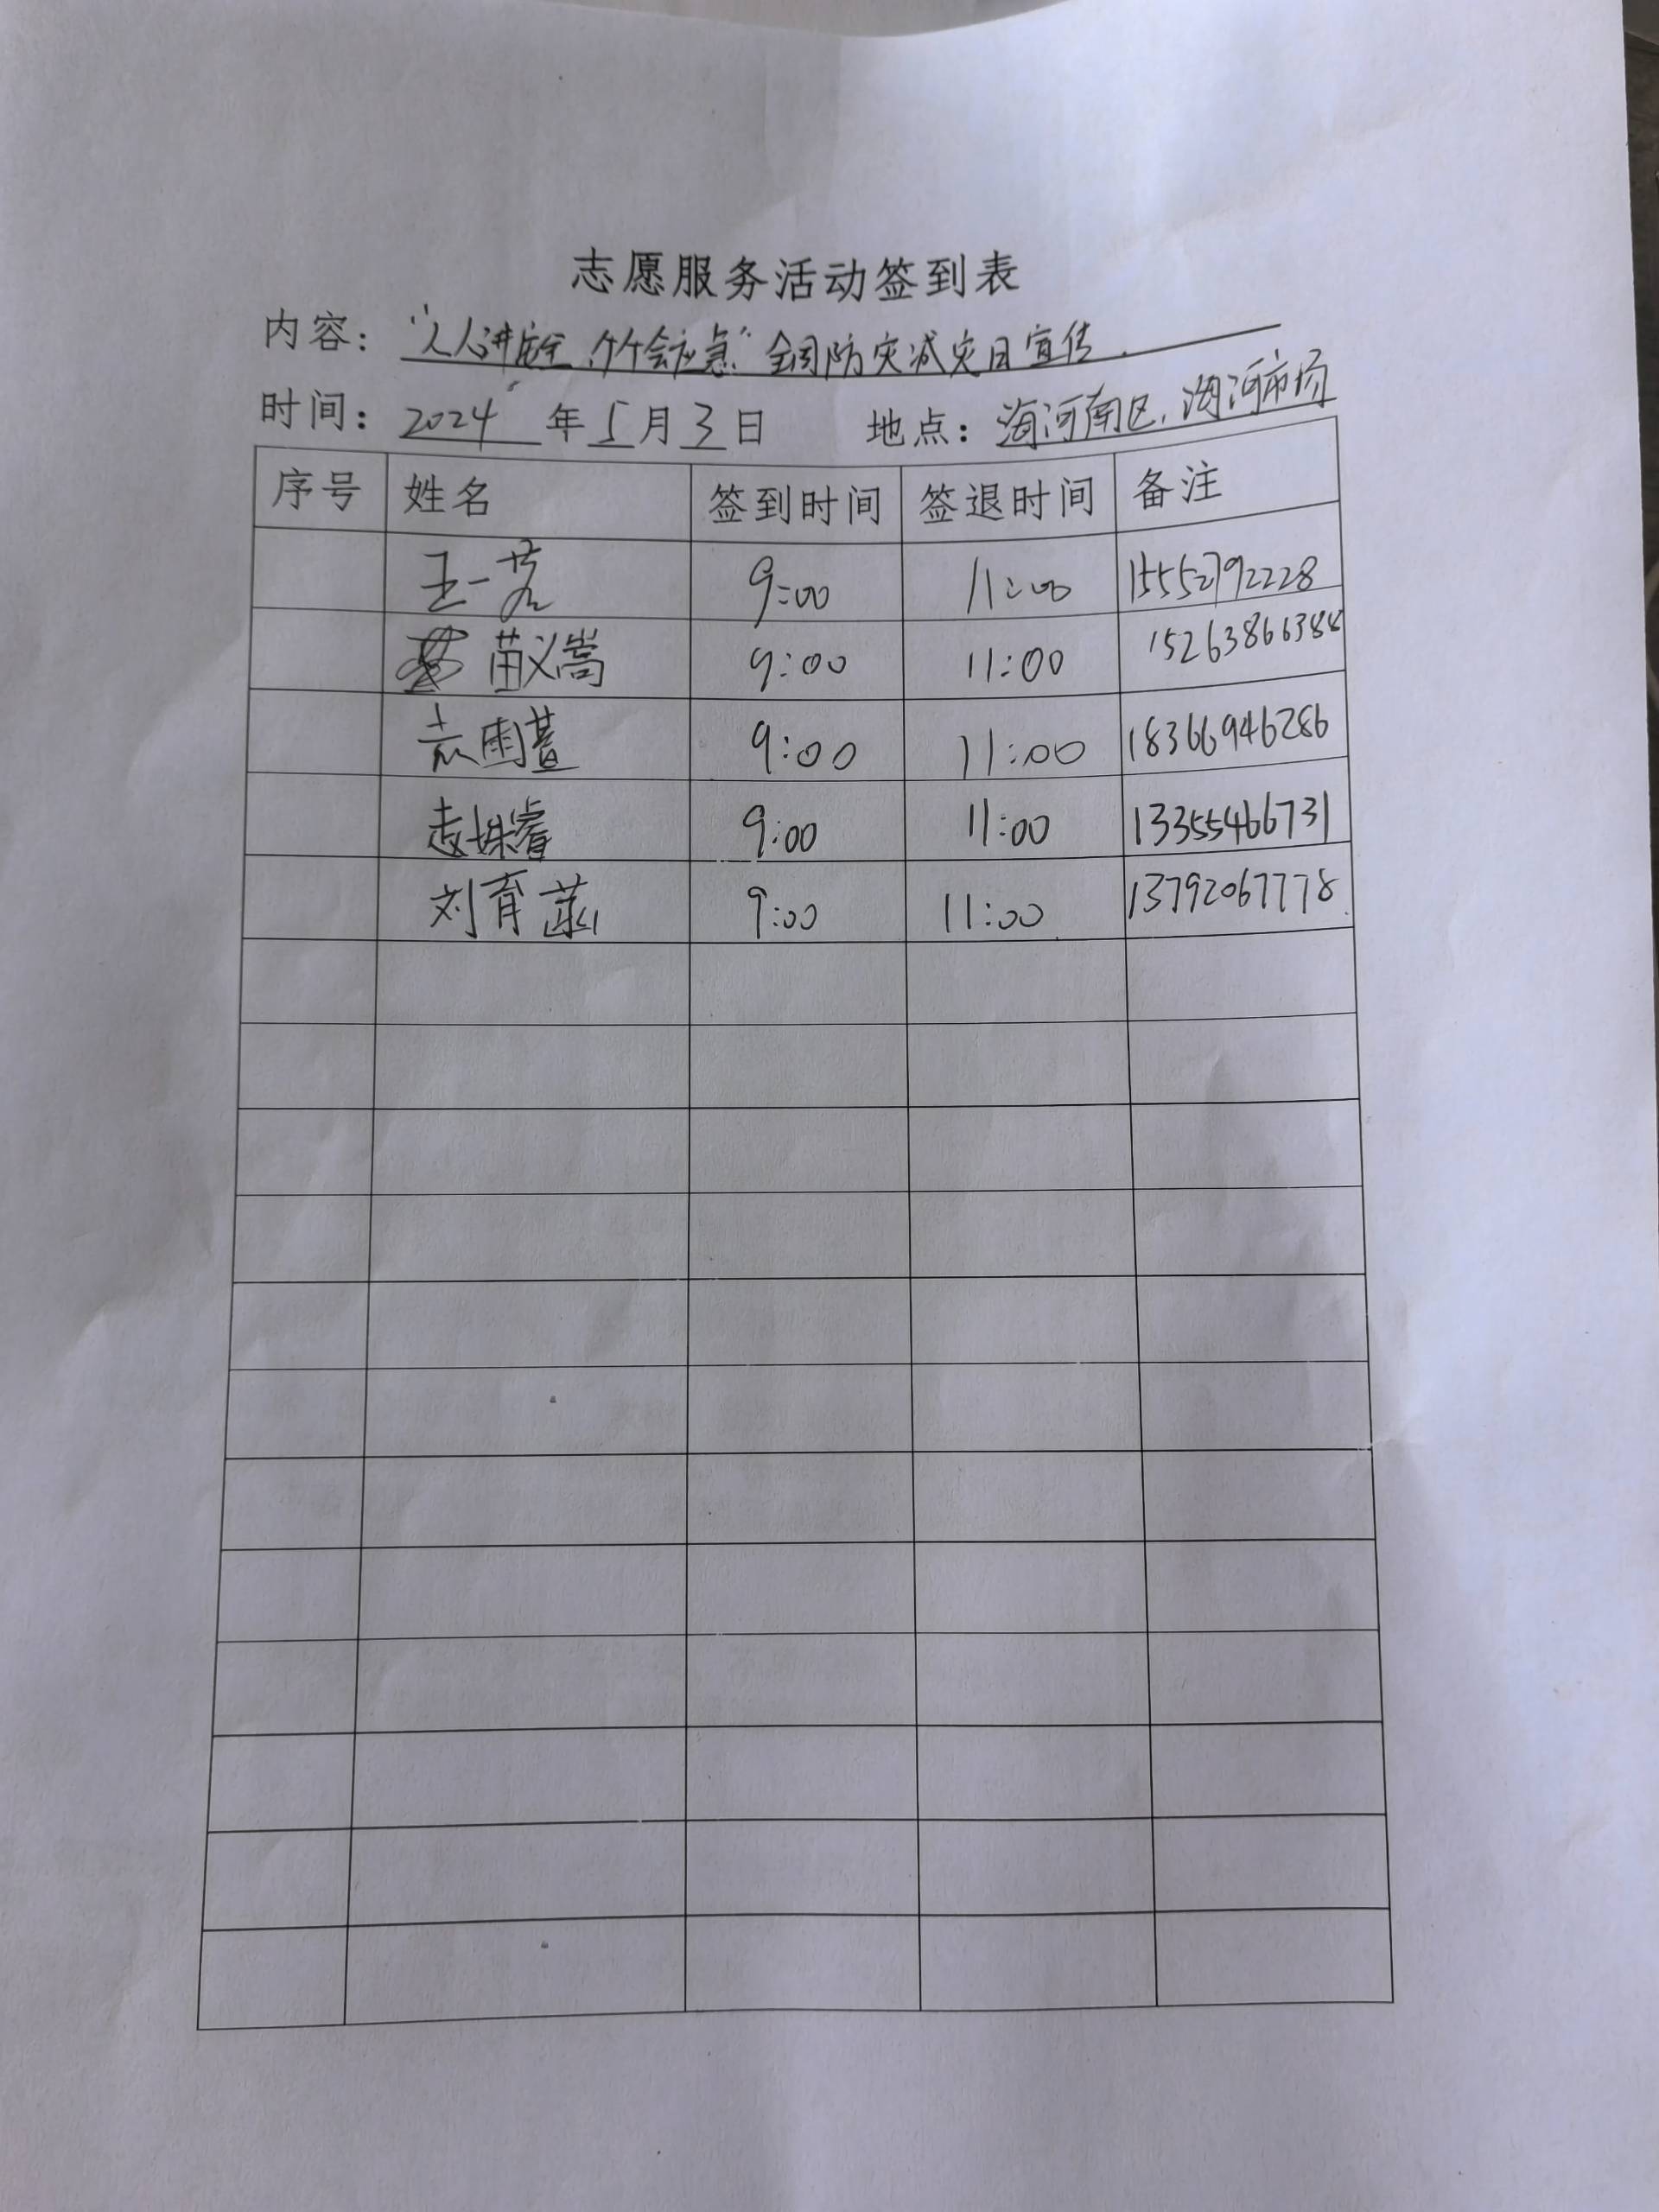 志愿服务活动签到表
内容：“人人讲安全、个个会应急”全国防灾减灾日宣传.
时间：2024年5月3日 地点：海河南区.海河市场
序号 姓名 签到时间 签退时间 备注
王一艺 9:00 11:00 15552792228
苗义嵩 9:00 11:00 15263866388
雨萱 9:00 11:00 18366946286
姝睿 9:00 11:00 13355466731
刘育菡 9:00 11:00 13792067778